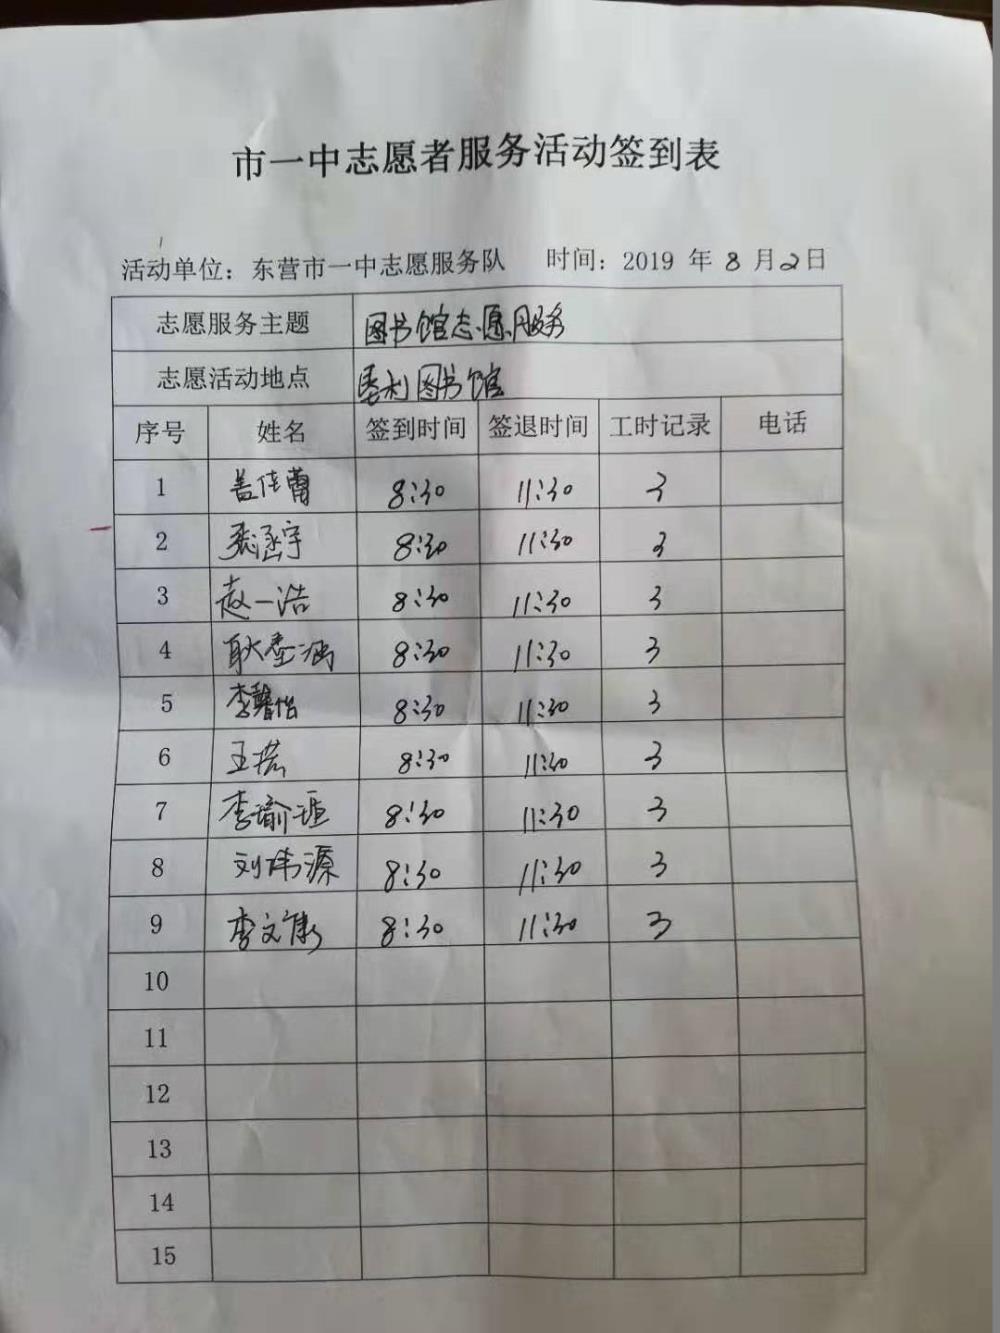 市一中志愿者服务活动签到表
活动单位：东营市一中志愿服务队 时间：2019 年 8 月 2 日
志愿服务主题 图书馆志愿服务
志愿活动地点 垦利图书馆
序号 姓名 签到时间 签退时间 工时记录 电话
1 盖佳蕾 8:30 11:30 3
2 丞宇 8:30 11:30 3
3 赵一浩 8:30 11:30 3
4 耿 涵 8:30 11:30 3
5 李馨怡 8:30 11:30 3
6 王 8:30 11:30 3
7 李瑜 8:30 11:30 3
8 刘 源 8:30 11:30 3
9 李文康 8:30 11:30 3
10
11
12
13
14
15